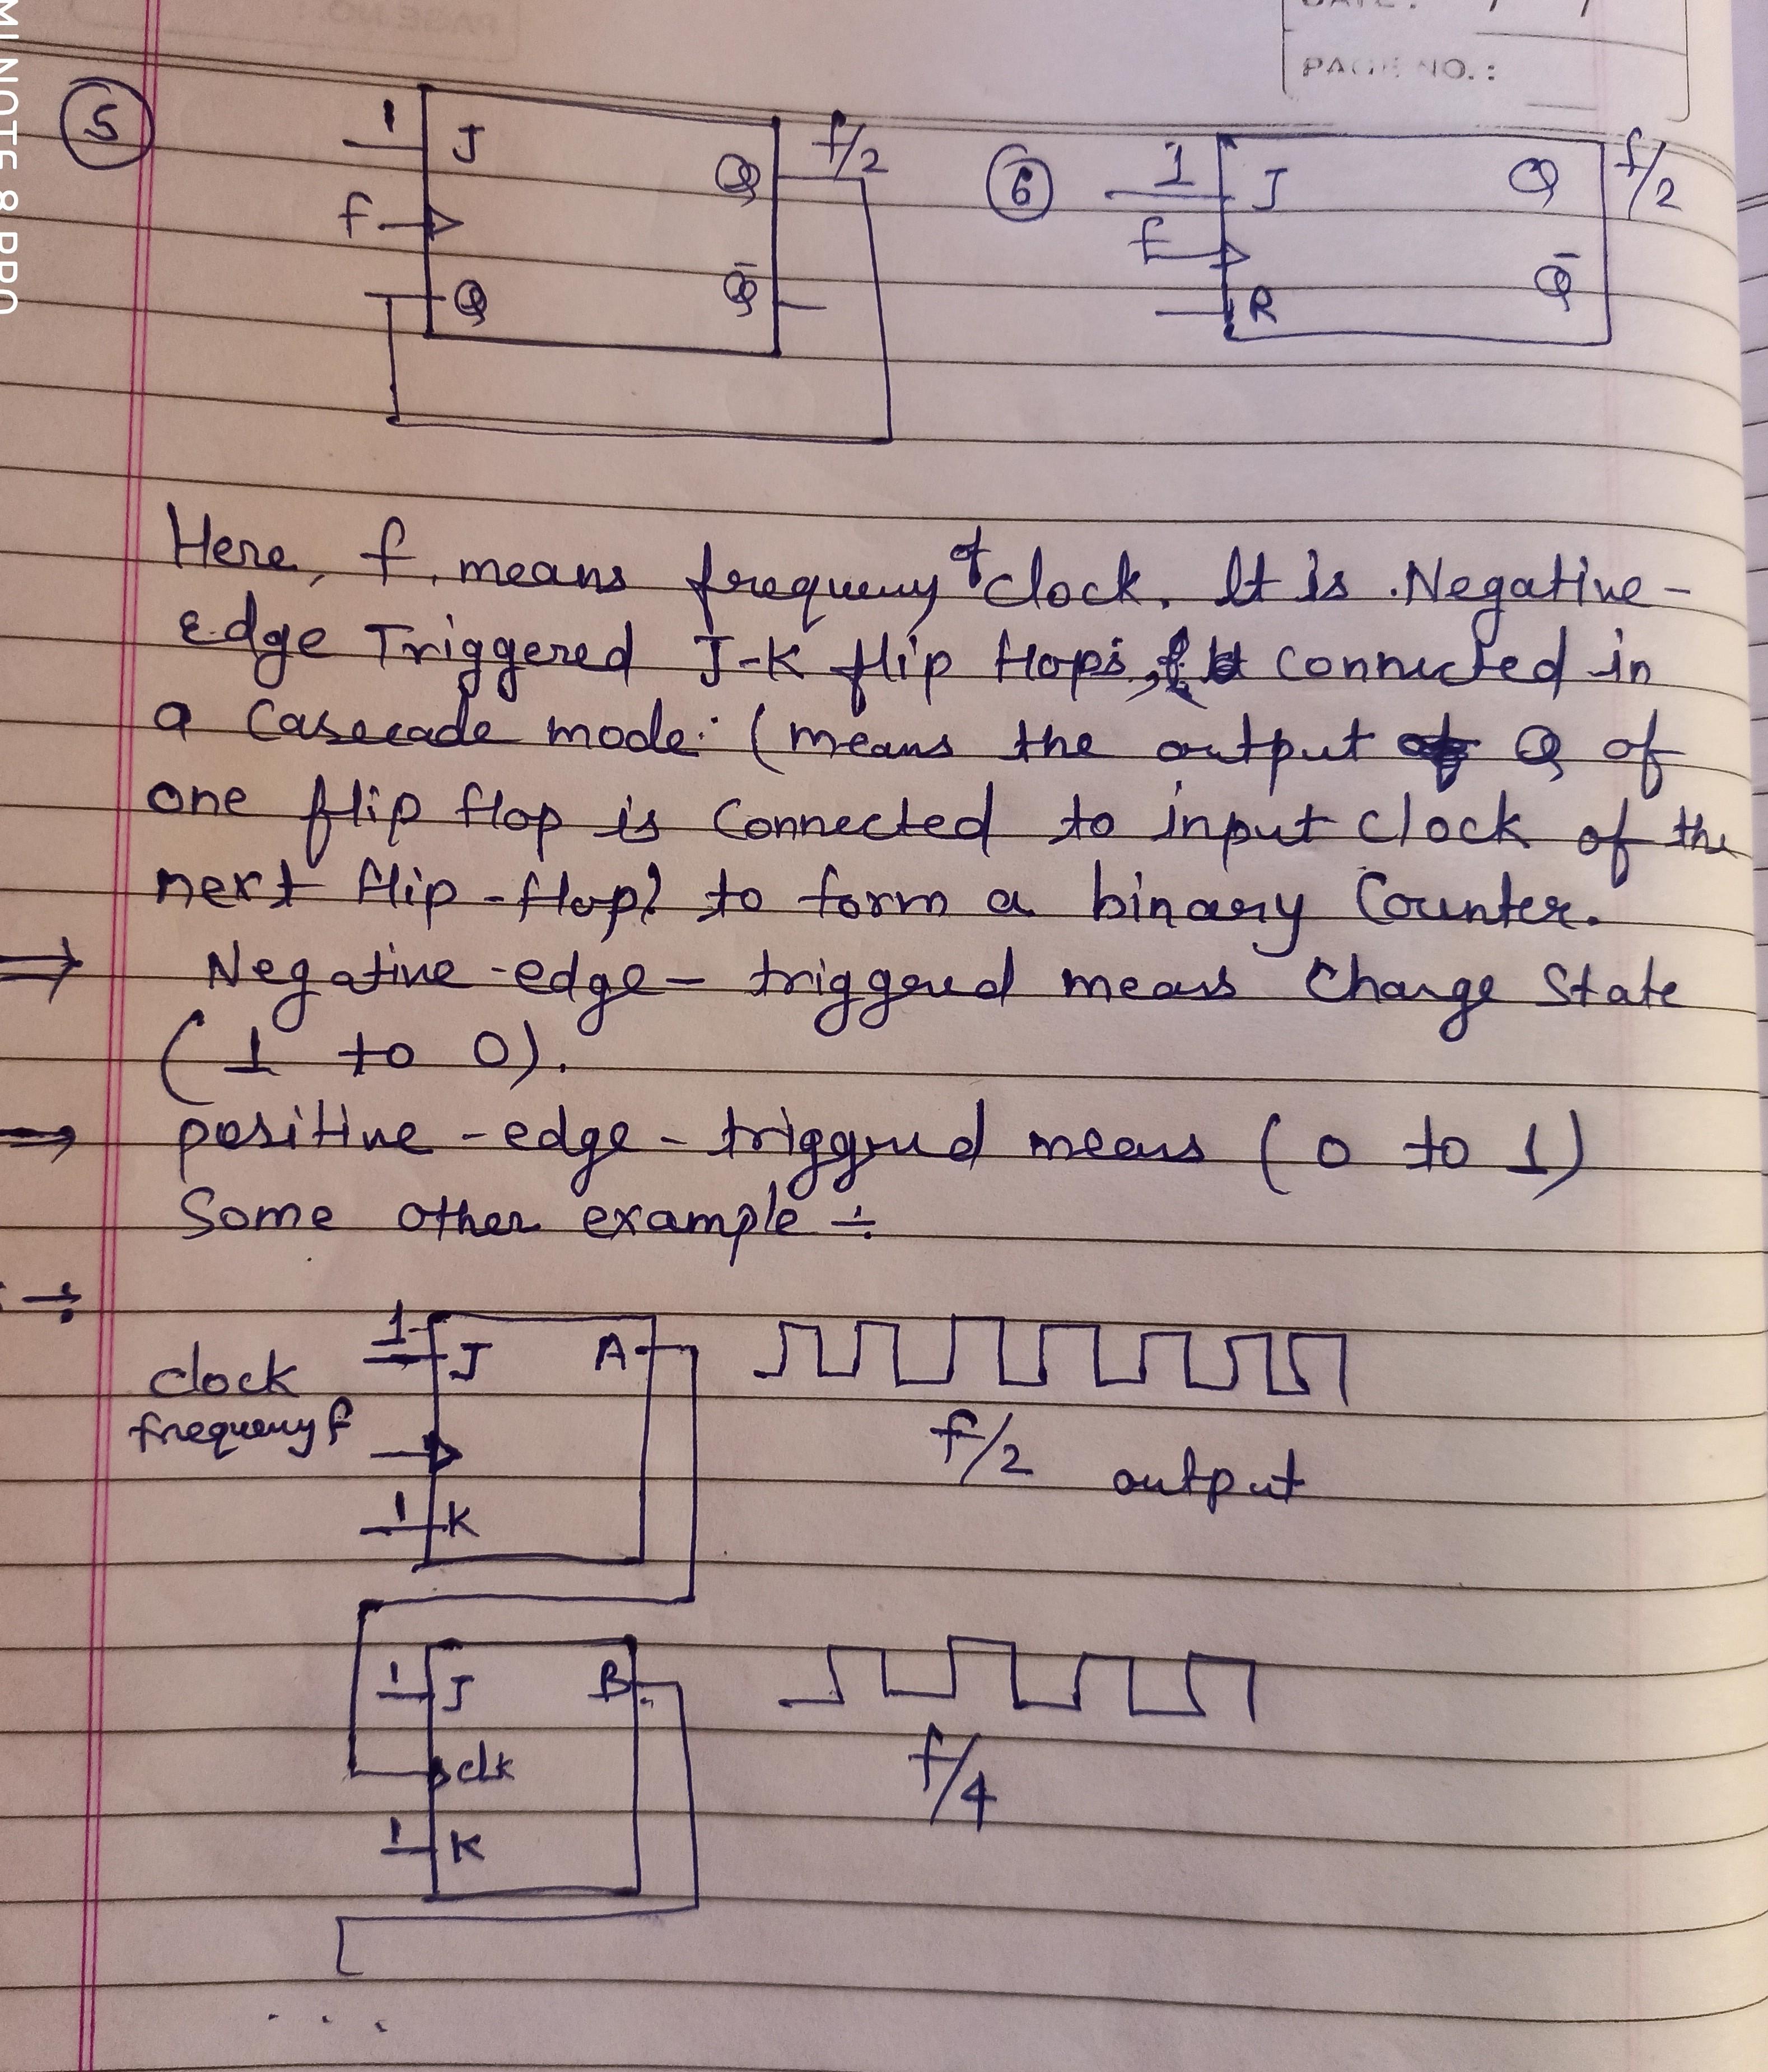 MI NOTE 8 PRO
PAGE NO. :
5
1
J
Q
f/2
f
Q
Q̄
6
1
J
Q
f/2
f
R
Q̄
Here, f, means frequency of clock. It is Negative-
Edge Triggered J-K flip flops, connected in
a Casecade mode: (means the output Q of
one flip flop is Connected to input clock of the
next flip-flop) to form a binary Counter.
⇒ Negative-edge-triggered means Change State
(1 to 0).
→ positive-edge-triggred means (0 to 1)
Some other example ÷
1
J
A
clock
frequency f
f/2 output
1
K
1
J
B
clk
f/4
1
K
...